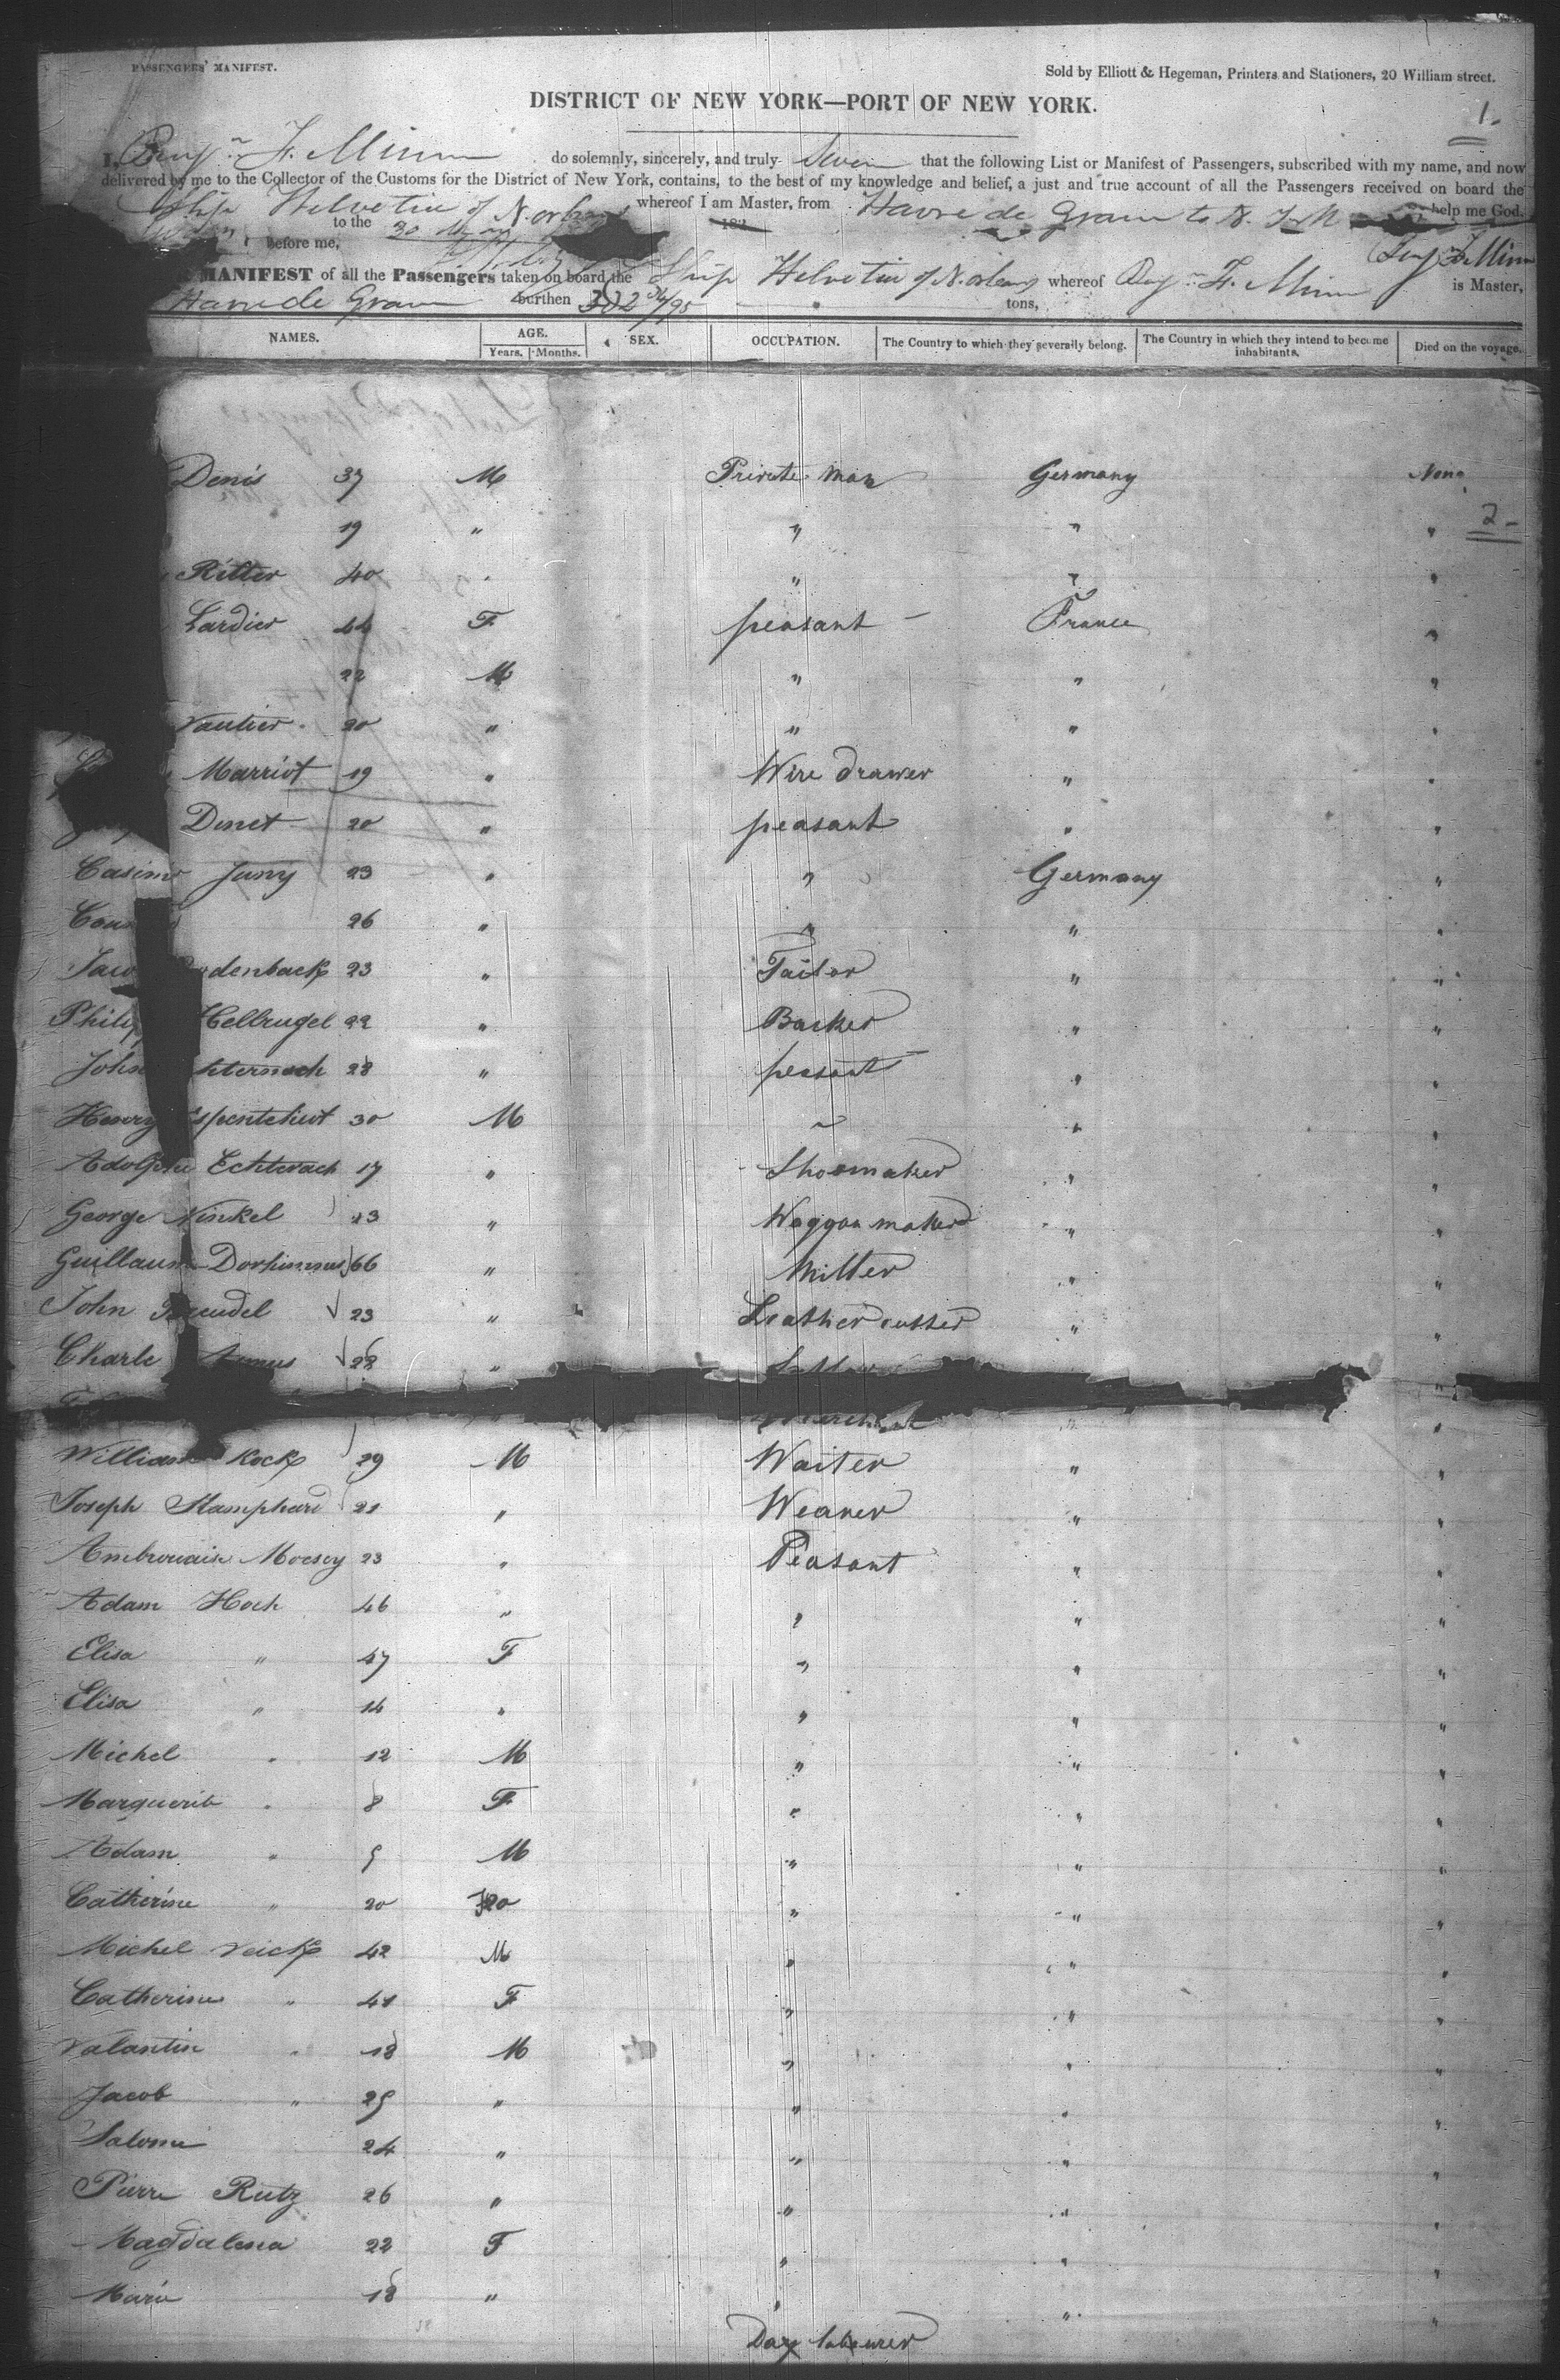 PASSENGERS' MANIFEST.
Sold by Elliott & Hegeman, Printers and Stationers, 20 William street.
DISTRICT OF NEW YORK—PORT OF NEW YORK.
1.
I, Benj.n F. Minn do solemnly, sincerely, and truly Swear that the following List or Manifest of Passengers, subscribed with my name, and now
delivered by me to the Collector of the Customs for the District of New York, contains, to the best of my knowledge and belief, a just and true account of all the Passengers received on board the
Ship Helvetia of N. orleans whereof I am Master, from Havre de Grace to N. help me God.
to the 30 182
Before me,
MANIFEST of all the Passengers taken on board the Ship Helvetia of N. orleans whereof Benj.n F. Minn is Master,
Havre de Grace burthen 332 /95 tons,
NAMES. AGE. Years. Months. SEX. OCCUPATION. The Country to which they severally belong. The Country in which they intend to become inhabitants. Died on the voyage.
Denis 37 M Private man Germany None
19 " " " " 2
Ritter 40 " " " "
Lardier 44 F peasant France "
22 M " " "
Vautier 20 " " " "
Marriot 19 " Wire drawer " "
Dinet 20 " peasant " "
Casimir Juny 23 " " Germany "
26 " " " "
denback 23 " Tailor " "
Hellrugel 22 " Backer " "
John 28 " peasant " "
Henry 30 M " " "
Adolphe Echterach 17 " Shoemaker " "
George Ninkel 23 " Waggon maker " "
Guillaum 66 " Miller " "
John 23 " Leather cutter " "
Charle 28 "
William Kock 29 M Waiter " "
Joseph Stamphard 21 " Weaver " "
Ambrouaise Moesey 23 " Peasant " "
Adam Hoch 46 " " " "
Elisa " 47 F " " "
Elisa " 14 " " " "
Michel " 12 M " " "
Marguerite " 8 F " " "
Adam " 5 M " " "
Catherine " 20 F20 " " "
Michel Veick 42 M " " "
Catherine " 41 F " " "
Valantin " 18 M " " "
Jacob " 25 " " " "
Salome 24 " " " "
Pierre Rutz 26 " " " "
Magdalena 22 F " " "
Marie 18 " " " "
Day labourer